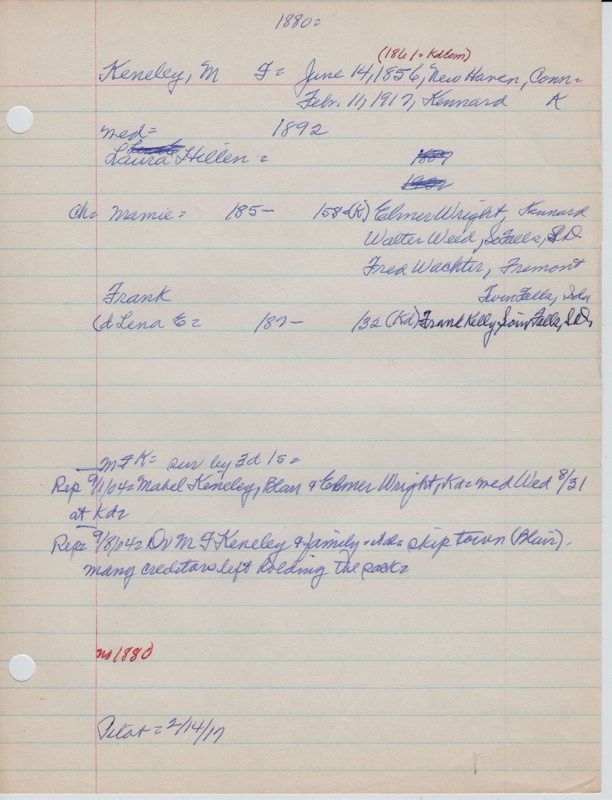 1880=
(1861= Kd Cem)
Keneley, M F= June 14, 1856, New Haven, Conn=
Feb. 11, 1917, Kennard K
med= 1892
Laura Hillen = 1889
1902
Ch= Mamie= 185- 158=(K) Elmer Wright, Kennard
Walter Weed, So Falls, S.D.
Fred Wachter, Fremont
Frank Twin Falls, Ida
(d Lena E= 187- 132 (Kd) Frank Kelly, Soix Falls, S.D.
M F K= sur by 3d 1s=
Rep 9/1/04= Mabel Keneley, Blair & Elmer Wright, Kd= med Wed 8/31
at Kd=
Rep= 9/8/04= Dr M F Keneley & family skip town (Blair).
many creditors left holding the sack=
no 1880
Pilot= 2/14/17